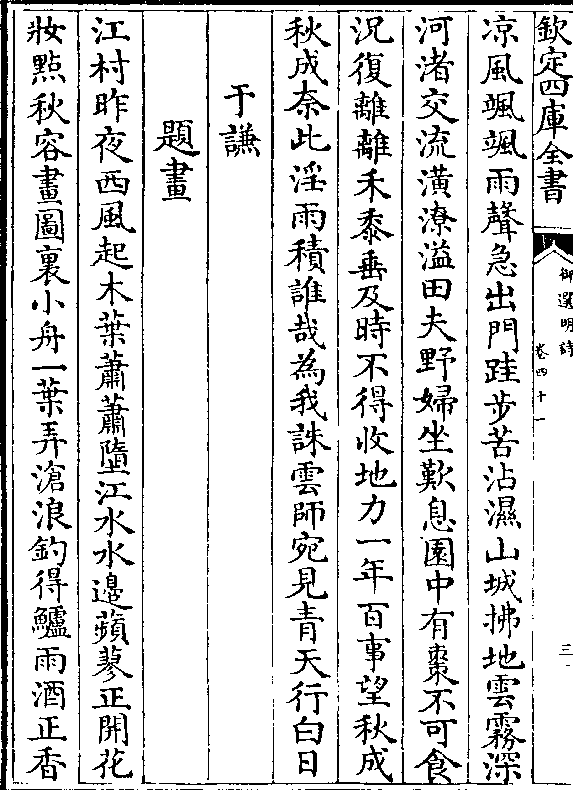 欽定四庫全書
御選明詩
卷四十一
三
凉風颯颯雨聲急出門跬步苦沾濕山城拂地雲霧深
河渚交流潢潦溢田夫野婦坐歎息園中有棗不可食
況復離離禾黍垂及時不得收地力一年百事望秋成
秋成奈此淫雨積誰哉為我誅雲師宛見青天行白日
于謙
題畫
江村昨夜西風起木葉蕭蕭墮江水水邉蘋蓼正開花
妝點秋容畫圖裏小舟一葉弄滄浪釣得鱸雨酒正香